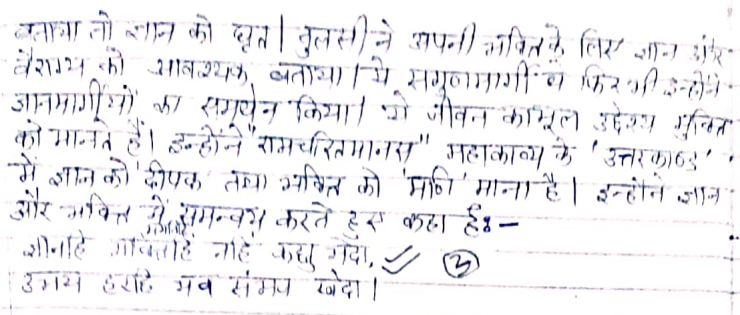 बताया तो ज्ञान को घृत। तुलसी ने अपनी भक्ति के लिए ज्ञान और
वैराग्य को आवश्यक बताया। ये सगुणमार्गी थे फिर भी इन्होंने
ज्ञानमार्गीयों का समर्थन किया। ये जीवन का मूल उद्देश्य मुक्ति
को मानते हैं। इन्होंने "रामचरितमानस" महाकाव्य के 'उत्तरकाण्ड'
में ज्ञान को 'दीपक' तथा भक्ति को 'मणि' माना है। इन्होंने ज्ञान
और भक्ति में समन्वय करते हुए कहा हैः-
ज्ञानहि भक्तिहिं नहिं कछु भेदा, ③
उभय हरहिं भव संभव खेदा।